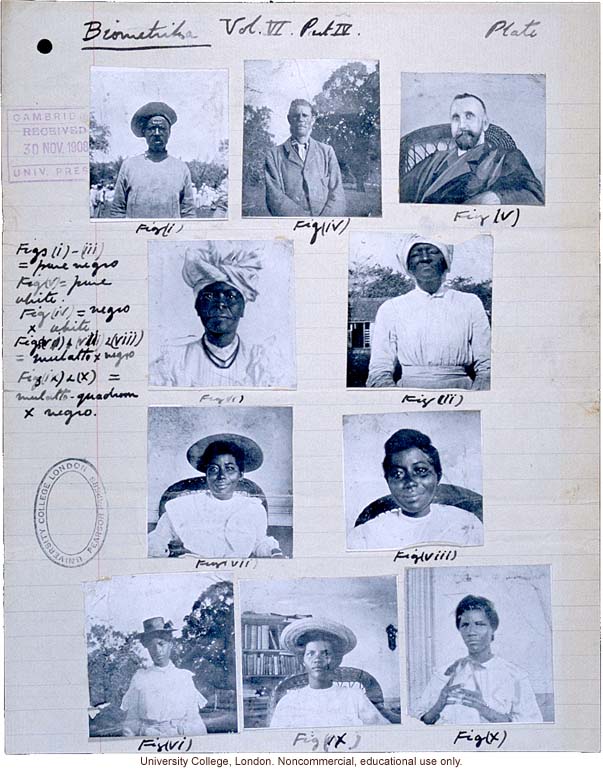 Biometrika Vol. VI. Part IV. Plate
CAMBRIDGE
RECEIVED
30 NOV. 1908
UNIV. PRESS
Fig (i)
Fig (iv)
Fig (v)
Figs (i) - (iii)
= pure negro
Fig (v) = pure
white.
Fig (iv) = negro
x white
Figs (vi) + (vii) & (viii)
= mulatto x negro
Figs (ix) & (x) =
mulatto-quadroon
x negro.
Fig (ii)
UNIVERSITY COLLEGE LONDON
PEARSON
Fig (vii)
Fig (viii)
Fig (vi)
Fig (ix)
Fig (x)
University College, London. Noncommercial, educational use only.